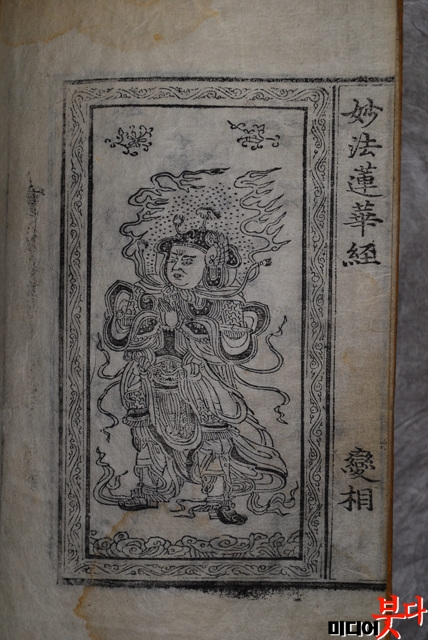 妙法蓮華經
變相
미디어붓다